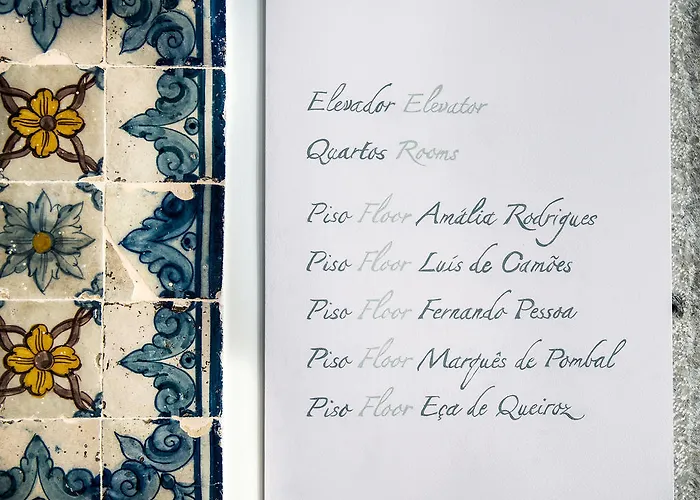 Elevador Elevator
Quartos Rooms
Piso Floor Amália Rodrigues
Piso Floor Luís de Camões
Piso Floor Fernando Pessoa
Piso Floor Marquês de Pombal
Piso Floor Eça de Queiroz